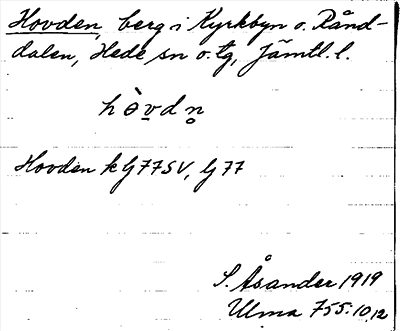 Hovden, berg i Kyrkbyn o. Rånd-
dalen, Hede sn o. tg, Jämtl. l.
h ɵ̀ v d n̥
Hovden k G77SV, G 77
S. Åsander 1919
Ulma 755:10,12